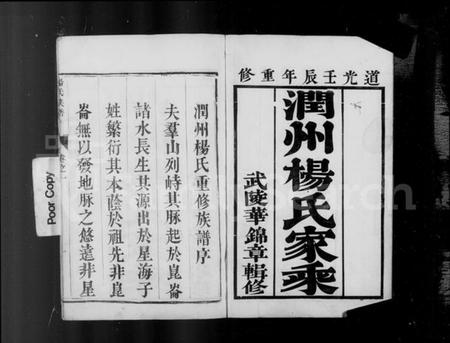 道光壬辰年重修
潤州楊氏家乘
武陵華錦章輯修
潤州楊氏重修族譜序
夫羣山列峙其脉起於崑崙
諸水長生其源出於星海子
姓繁衍其本蔭於祖先非崑
崙無以發地脉之悠遠非星
卷之一
Poor Copy